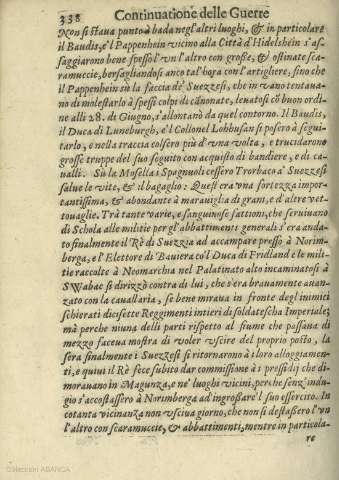 338 Continuatione delle Guerre
Non si staua punto à bada negl'altri luoghi, & in particolare
il Baudis, e'l Pappenhein vicino alla Città d'Hidelshein s'as-
saggiarono bene spesso l'vn l'altro con grosse, & ostinate sca-
ramuccie, bersagliandosi anco tal'hora con l'artigliere, fino che
il Pappenhein sù la faccia de' Suezzesi, che in vano tentaua-
no di molestarlo à spessi colpi di cãnonate, leuatosi cõ buon ordi-
ne alli 28. di Giugno, s'allontanò da quel contorno. Il Baudis,
il Duca di Luneburgh, e'l Collonel Lohhusan si posero à segui-
tarlo, e nella traccia colsero più d'vna volta, e trucidarono
grosse truppe del suo seguito con acquisto di bandiere, e di ca-
ualli. Sù la Mosella i Spagnuoli cessero Trorbaco à Suezzesi
salue le vite, & il bagaglio: Quest'era vna fortezza impor-
tantissima, & abondante à marauiglia di grani, e d'altre vet-
touaglie. Trà tante varie, e sanguinose fattioni, che seruiuano
di Schola alle militie per gl'abbattimenti generali s'era anda-
to finalmente il Rè di Suezzia ad accampare presso à Norim-
berga, e l'Elettore di Bauiera col Duca di Fridland e le mili-
tie raccolte à Neomarchia nel Palatinato alto incaminatosi à
SWabac si dirizzò contra di lui, che s'era brauamente auan-
zato con la cauallaria, se bene miraua in fronte degl'inimici
schierati dicisette Reggimenti intieri di soldatesca Imperiale;
mà perche niuna delli parti rispetto al fiume che passaua di
mezzo faceua mostra di voler vscire del proprio posto, la
sera finalmente i Suezzesi si ritornarono à i loro alloggiamen-
ti, e quiui il Rè fece subito dar commissione à i pressidij che di-
morauano in Magunza, e ne' luoghi vicini, perche senz'indu-
gio s'accostassero à Norimberga ad ingrossare'l suo essercito. In
cotanta vicinanza non vsciua giorno, che non si destassero l'vn
l'altro con scaramuccie, & abbattimenti, mentre in particola-
re
Colección ABANCA